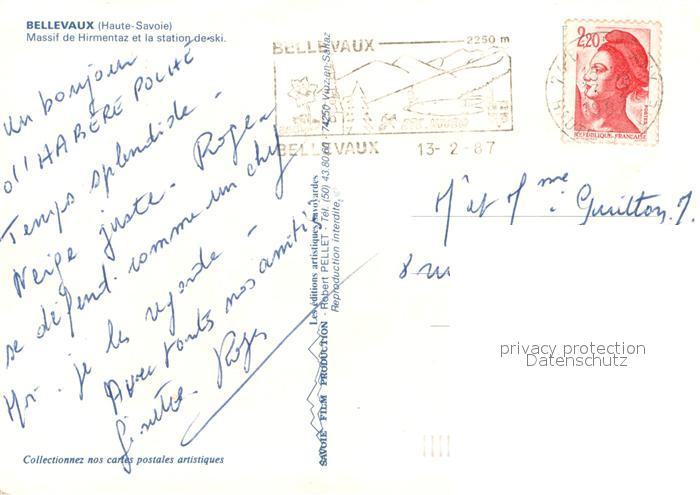 BELLEVAUX (Haute-Savoie)
Massif de Hirmentaz et la station de ski.
Un bonjour
d'HABÈRE POCHE
Temps splendide -
Neige juste - Roger
se défend comme un chef
Moi. je les regarde -
Avec toute nos amitiés
Ginette Roger
Collectionnez nos cartes postales artistiques
Les éditions artistiques savoyardes
SAVOIE FILM PRODUCTION - Robert PELLET - Tél. (50) 43.80.60 74250 Viuz-en-Sallaz
Reproduction interdite
BELLEVAUX 2250 m
BELLEVAUX 13-2-87
2,20
REPUBLIQUE FRANÇAISE
Mr et Mme Guitton. J.
8 ru
privacy protection
Datenschutz